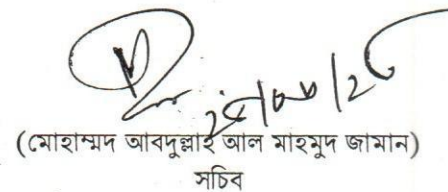 (মোহাম্মদ আবদুল্লাহ আল মাহমুদ জামান)
সচিব